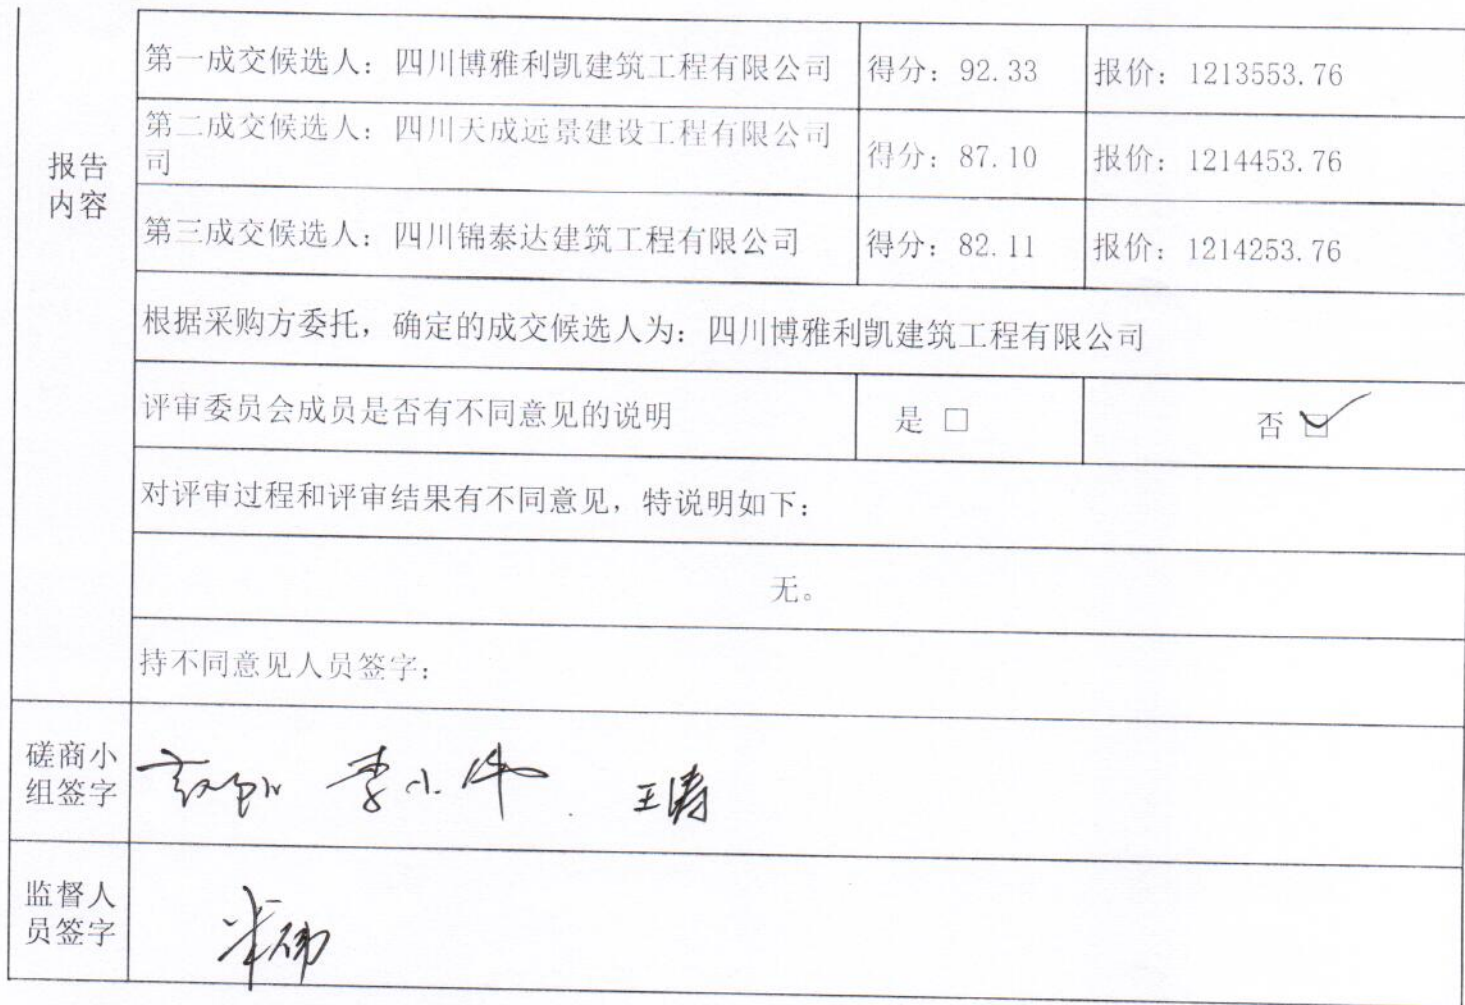 第一成交候选人：四川博雅利凯建筑工程有限公司 得分：92.33 报价：1213553.76
第二成交候选人：四川天成远景建设工程有限公司
司 得分：87.10 报价：1214453.76
报告
内容
第三成交候选人：四川锦泰达建筑工程有限公司 得分：82.11 报价：1214253.76
根据采购方委托，确定的成交候选人为：四川博雅利凯建筑工程有限公司
评审委员会成员是否有不同意见的说明 是 □ 否 ☑
对评审过程和评审结果有不同意见，特说明如下：
无。
持不同意见人员签字：
磋商小
组签字
李小 王涛
监督人
员签字